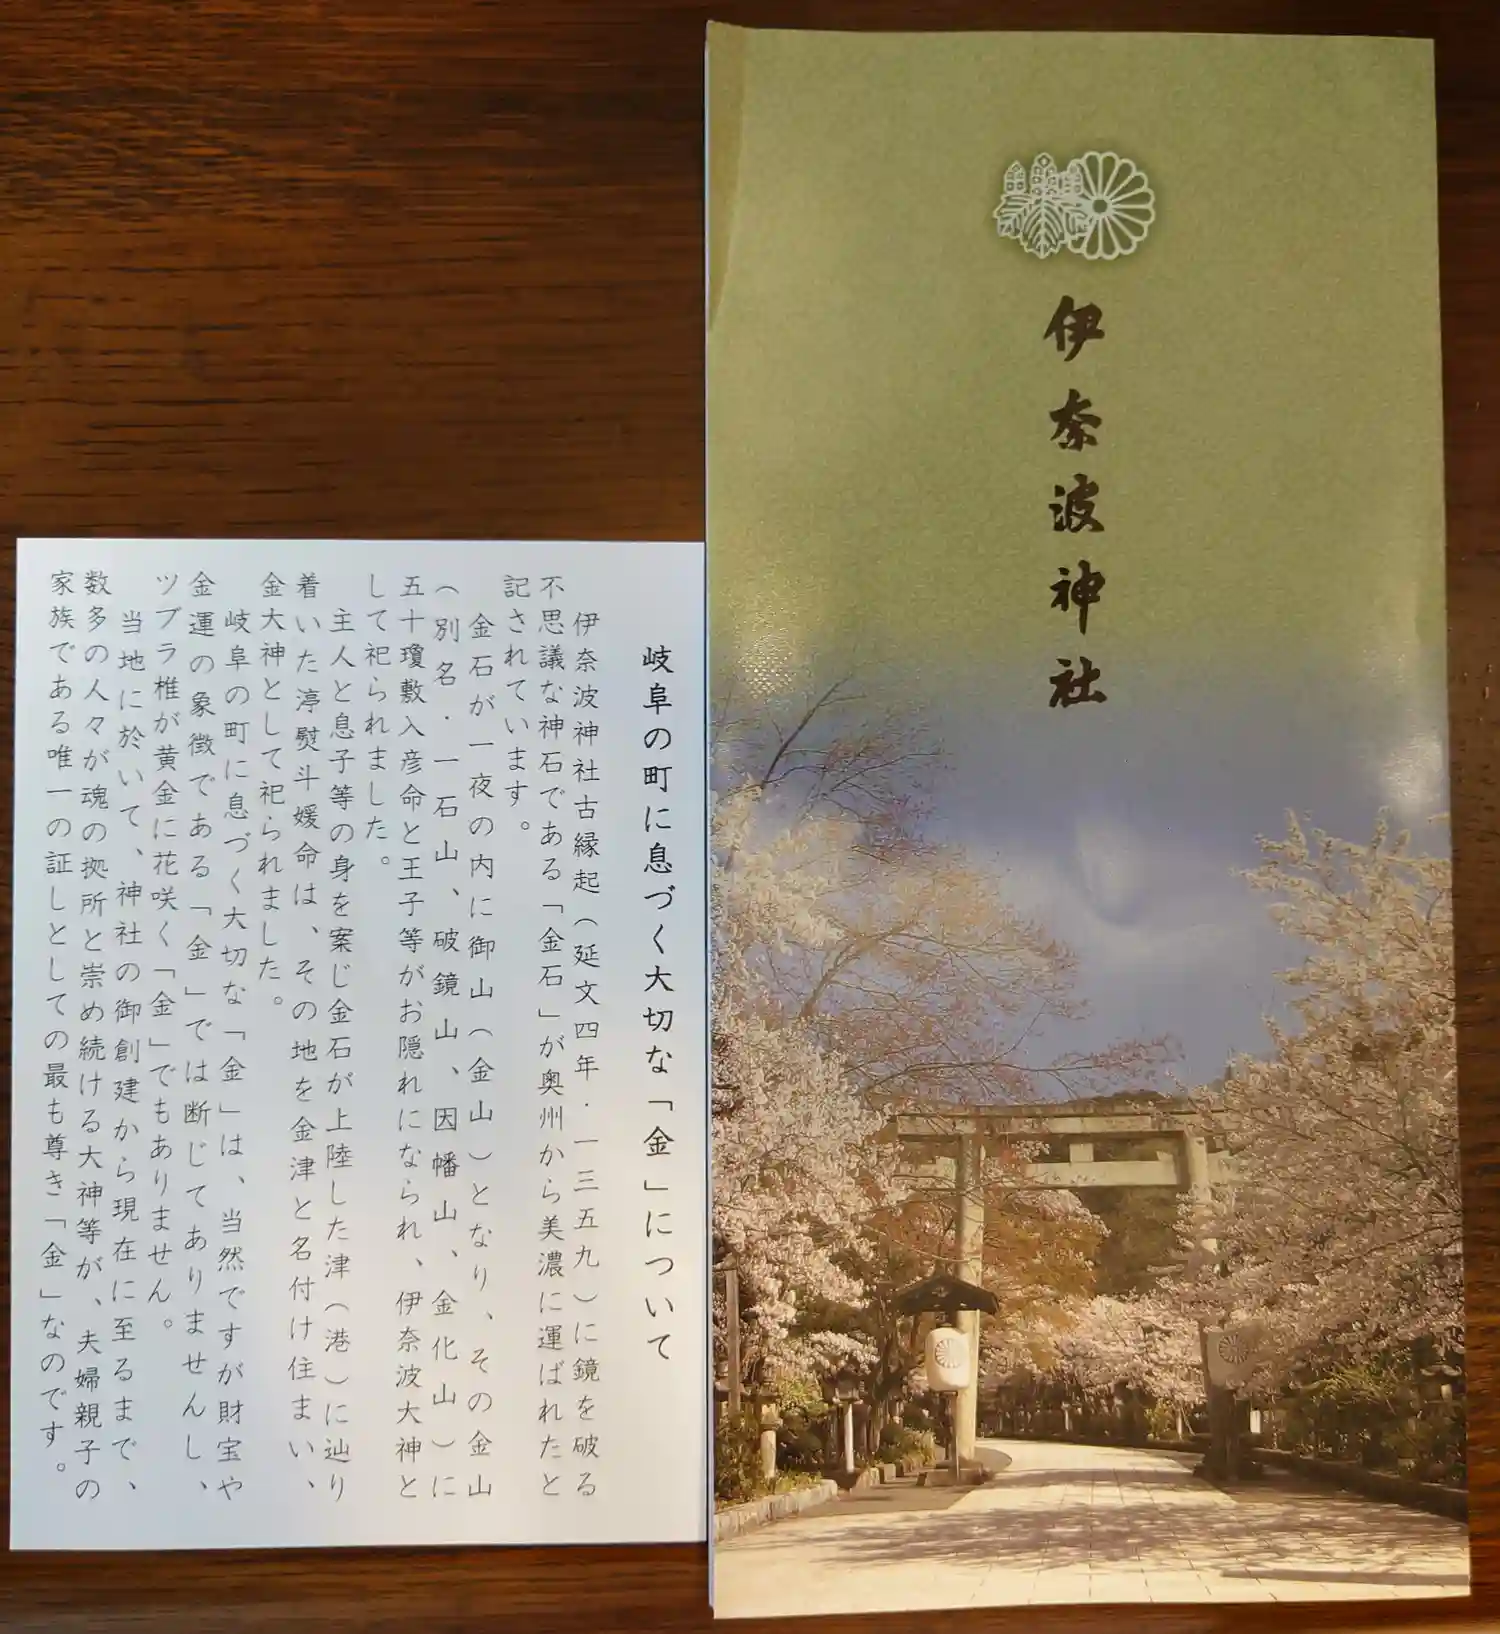 伊奈波神社
岐阜の町に息づく大切な「金」について
伊奈波神社古縁起(延文四年・一三五九)に鏡を破る
不思議な神石である「金石」が奥州から美濃に運ばれたと
記されています。
金石が一夜の内に御山(金山)となり、その金山
(別名・一石山、破鏡山、因幡山、金化山)に
五十瓊敷入彦命と王子等がお隠れになられ、伊奈波大神と
して祀られました。
主人と息子等の身を案じ金石が上陸した津(港)に辿り
着いた渟熨斗媛命は、その地を金津と名付け住まい、
金大神として祀られました。
岐阜の町に息づく大切な「金」は、当然ですが財宝や
金運の象徴である「金」では断じてありませんし、
ツブラ椎が黄金に花咲く「金」でもありません。
当地に於いて、神社の御創建から現在に至るまで、
数多の人々が魂の拠所と崇め続ける大神等が、夫婦親子の
家族である唯一の証しとしての最も尊き「金」なのです。